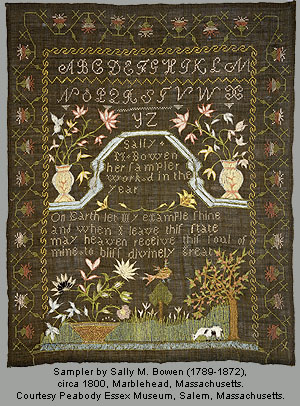 ABCDEFGHIKLM
NOPQRSTVWX
YZ
Sally
M Bowen
her sampler
worked in the
year
On Earth let my example shine
and when I leave this state
may heaven receive this soul of
mine to bliss divinely great
Sampler by Sally M. Bowen (1789-1872),
circa 1800, Marblehead, Massachusetts.
Courtesy Peabody Essex Museum, Salem, Massachusetts.